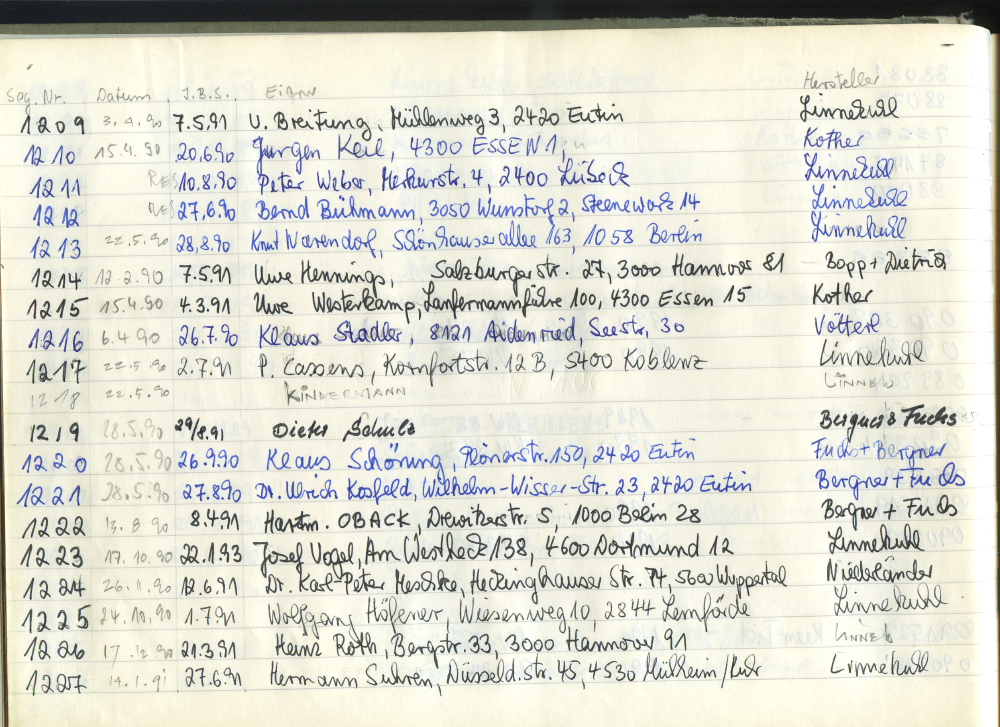 Seg. Nr. Datum J.B.S. Eigner Hersteller
1209 3.4.90 7.5.91 U. Breitung, Müllenweg 3, 2420 Eutin Linnekuhl
1210 15.4.90 20.6.90 Jürgen Keil, 4300 ESSEN 1, Köther
1211 RES 10.8.90 Peter Weber, Merkurstr. 4, 2400 Lübeck Linnekuhl
1212 RES 27.6.90 Bernd Bühmann, 3050 Wunstorf 2, Steenewark 14 Linnekuhl
1213 22.5.90 28.8.90 Knut Warendorf, Schönhauser allee 163, 1058 Berlin Linnekuhl
1214 12.2.90 7.5.91 Uwe Hennings, Salzburgerstr. 27, 3000 Hannover 81 Bopp + Dietrich
1215 15.4.90 4.3.91 Uwe Westerkamp, Lanfermannfähre 100, 4300 Essen 15 Köther
1216 6.4.90 26.7.90 Klaus Stadler, 8121 Aidenried, Seestr. 30 Vötterl
1217 22.5.90 2.7.91 P. Cassens, Kornfortstr. 12 B, 5400 Koblenz Linnekuhl
1218 22.5.90 KINDERMANN LINNEK
1219 28.5.90 29/8.91 Dieter Schulz Bergner & Fuchs
1220 28.5.90 26.9.90 Klaus Schöning, Plönerstr. 150, 2420 Eutin Fuchs + Bergner
1221 28.5.90 27.8.90 Dr. Ulrich Kosfeld, Wilhelm-Wisser-Str. 23, 2420 Eutin Bergner + Fuchs
1222 13.8 90 8.4.91 Hartm. OBACK, Drewitzerstr. 5, 1000 Berlin 28 Bergner + Fuchs
1223 17.10.90 22.1.93 Josef Vogel, Am Westheck 138, 4600 Dortmund 12 Linnekuhl
1224 26.11.90 12.6.91 Dr. Karl-Peter Meschke, Heckinghauser Str. 74, 5600 Wuppertal Niederländer
1225 24.10.90 1.7.91 Wolfgang Höfener, Wiesenweg 10, 2844 Lemförde Linnekuhl
1226 17.12.90 21.3.91 Heinz Roth, Bergstr. 33, 3000 Hannover 91 LINNEK
1227 14.1.91 27.6.91 Hermann Suhren, Düsseld. str. 45, 4530 Mülheim/Ruhr Linnekuhl